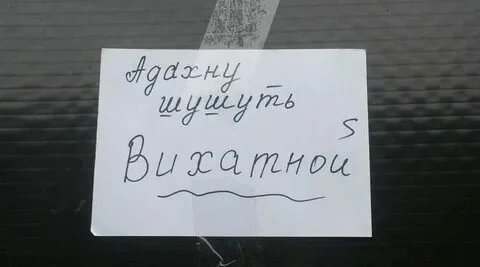 Адахну
шушуть
s
Вихатной